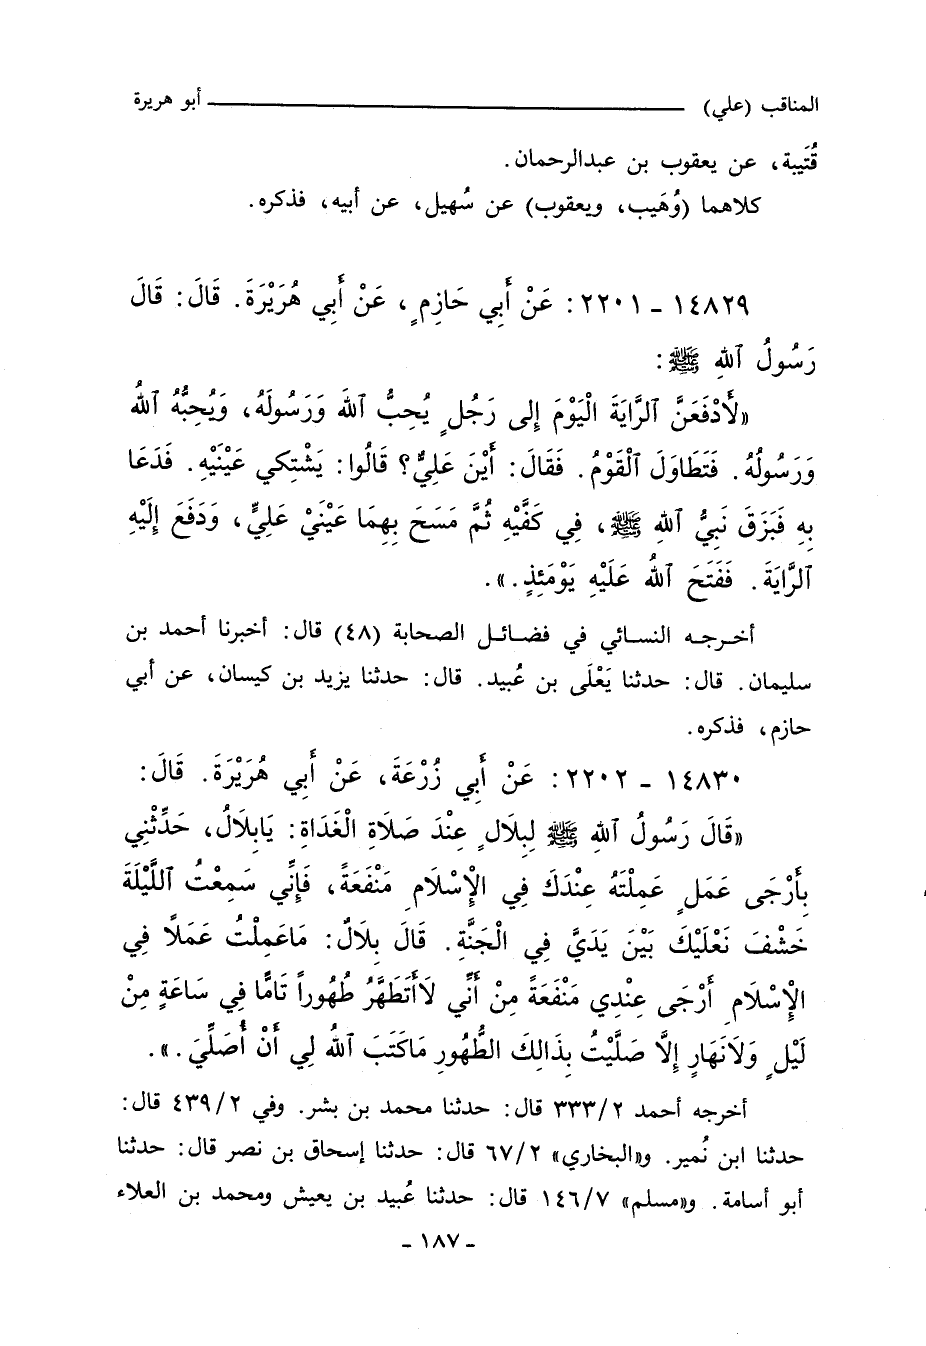 المناقب (علي) ــــــــــــــــــــــــــــــــ أبو هريرة
قُتَيبة، عن يعقوب بن عبدالرحمان.
كلاهما (وُهَيب، ويعقوب) عن سُهيل، عن أبيه، فذكره.
١٤٨٢٩ ـ ٢٢٠١: عَنْ أَبِي حَازِمٍ، عَنْ أَبِي هُرَيْرَةَ. قَالَ: قَالَ
رَسُولُ ٱللهِ ﷺ:
«لَأَدْفَعَنَّ ٱلرَّايَةَ الْيَوْمَ إِلى رَجُلٍ يُحِبُّ ٱللهَ وَرَسُولَهُ، وَيُحِبُّهُ ٱللهُ
وَرَسُولُهُ. فَتَطَاوَلَ ٱلْقَوْمُ. فَقَالَ: أَيْنَ عَلِيٌّ؟ قَالُوا: يَشْتِكي عَيْنَيْهِ. فَدَعَا
بِهِ فَبَزَقَ نَبِيُّ ٱللهِ ﷺ، فِي كَفَّيْهِ ثُمَّ مَسَحَ بِهِمَا عَيْنَيْ عَلِيٍّ، وَدَفَعَ إِلَيْهِ
ٱلرَّايَةَ. فَفَتَحَ ٱللهُ عَلَيْهِ يَوْمَئِذٍ.».
أخرجه النسائي في فضائل الصحابة (٤٨) قال: أخبرنا أحمد بن
سليمان. قال: حدثنا يَعْلَى بن عُبيد. قال: حدثنا يزيد بن كيسان، عن أبي
حازم، فذكره.
١٤٨٣٠ ـ ٢٢٠٢: عَنْ أَبِي زُرْعَةَ، عَنْ أَبِي هُرَيْرَةَ. قَالَ:
«قَالَ رَسُولُ ٱللهِ ﷺ لِبِلَالٍ عِنْدَ صَلَاةِ الْغَدَاةِ: يَابِلَالُ، حَدِّثْنِي
بِأَرْجَى عَمَلٍ عَمِلْتَهُ عِنْدَكَ فِي الْإِسْلَامِ مَنْفَعَةً، فَإِنِّي سَمِعْتُ ٱللَّيْلَةَ
خَشْفَ نَعْلَيْكَ بَيْنَ يَدَيَّ فِي الْجَنَّةِ. قَالَ بِلَالٌ: مَاعَمِلْتُ عَمَلًا فِي
الْإِسْلَامِ أَرْجَى عِنْدِي مَنْفَعَةً مِنْ أَنِّي لَاأَتَطَهَّرُ طُهُوراً تَامًّا فِي سَاعَةٍ مِنْ
لَيْلٍ وَلَانَهَارٍ إِلَّا صَلَّيْتُ بِذَالِكَ الطُّهُورِ مَاكَتَبَ ٱللهُ لِي أَنْ أُصَلِّيَ.».
أخرجه أحمد ٣٣٣/٢ قال: حدثنا محمد بن بشر. وفي ٤٣٩/٢ قال:
حدثنا ابن نُمير. و«البخاري» ٦٧/٢ قال: حدثنا إسحاق بن نصر قال: حدثنا
أبو أسامة. و«مسلم» ١٤٦/٧ قال: حدثنا عُبيد بن يعيش ومحمد بن العلاء
ـ ١٨٧ ـ